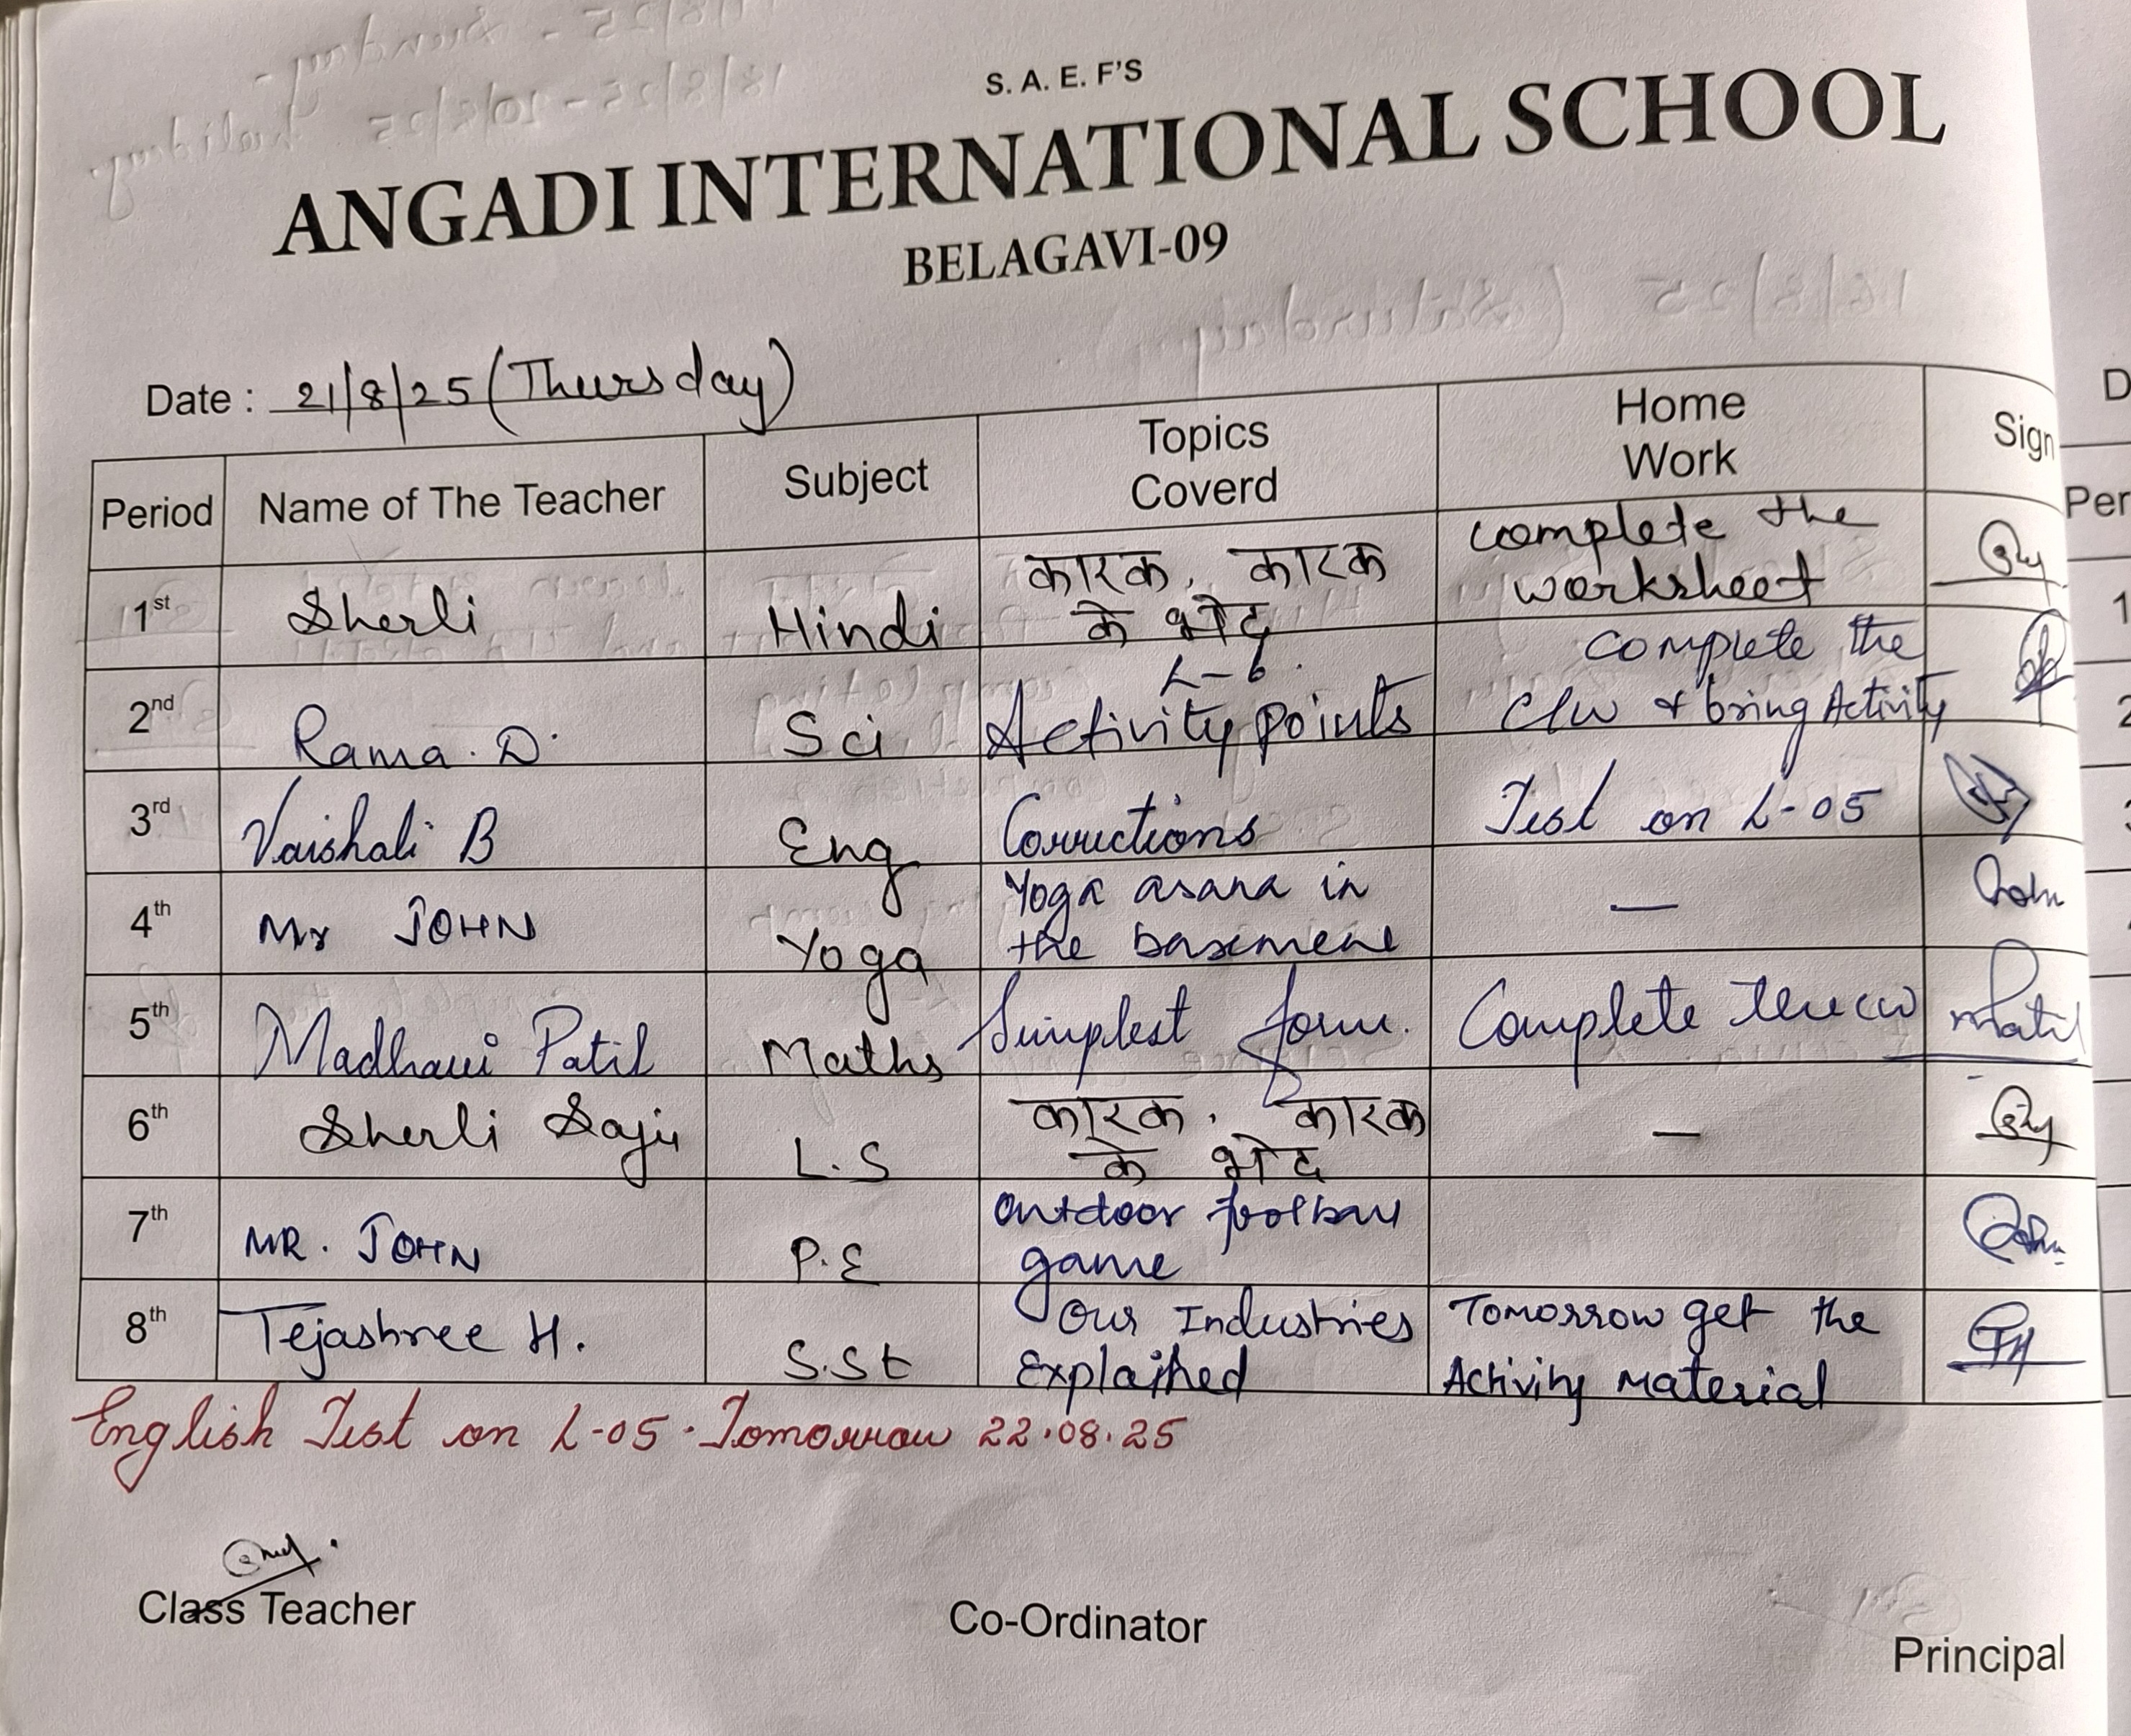 S. A. E. F'S
ANGADI INTERNATIONAL SCHOOL
BELAGAVI-09
Date : 21/8/25 (Thursday)
Period Name of The Teacher Subject Topics Coverd Home Work Sign
1st Sherli Hindi कारक, कारक के भेद complete the worksheet
2nd Rama. D. Sci L-6. Activity points complete the C/w & bring Activity
3rd Vaishali B Eng Corrections Test on L-05
4th Mr JOHN Yoga Yoga asana in the basement — John
5th Madhavi Patil Maths Simplest form. Complete the cw Patil
6th Sherli Saju L.S कारक, कारक के भेद —
7th MR. JOHN P.E Outdoor football game John
8th Tejashree H. S.St Our Industries Explained Tomorrow get the Activity Material
English Test on L-05. Tomorrow 22.08.25
Class Teacher
Co-Ordinator
Principal